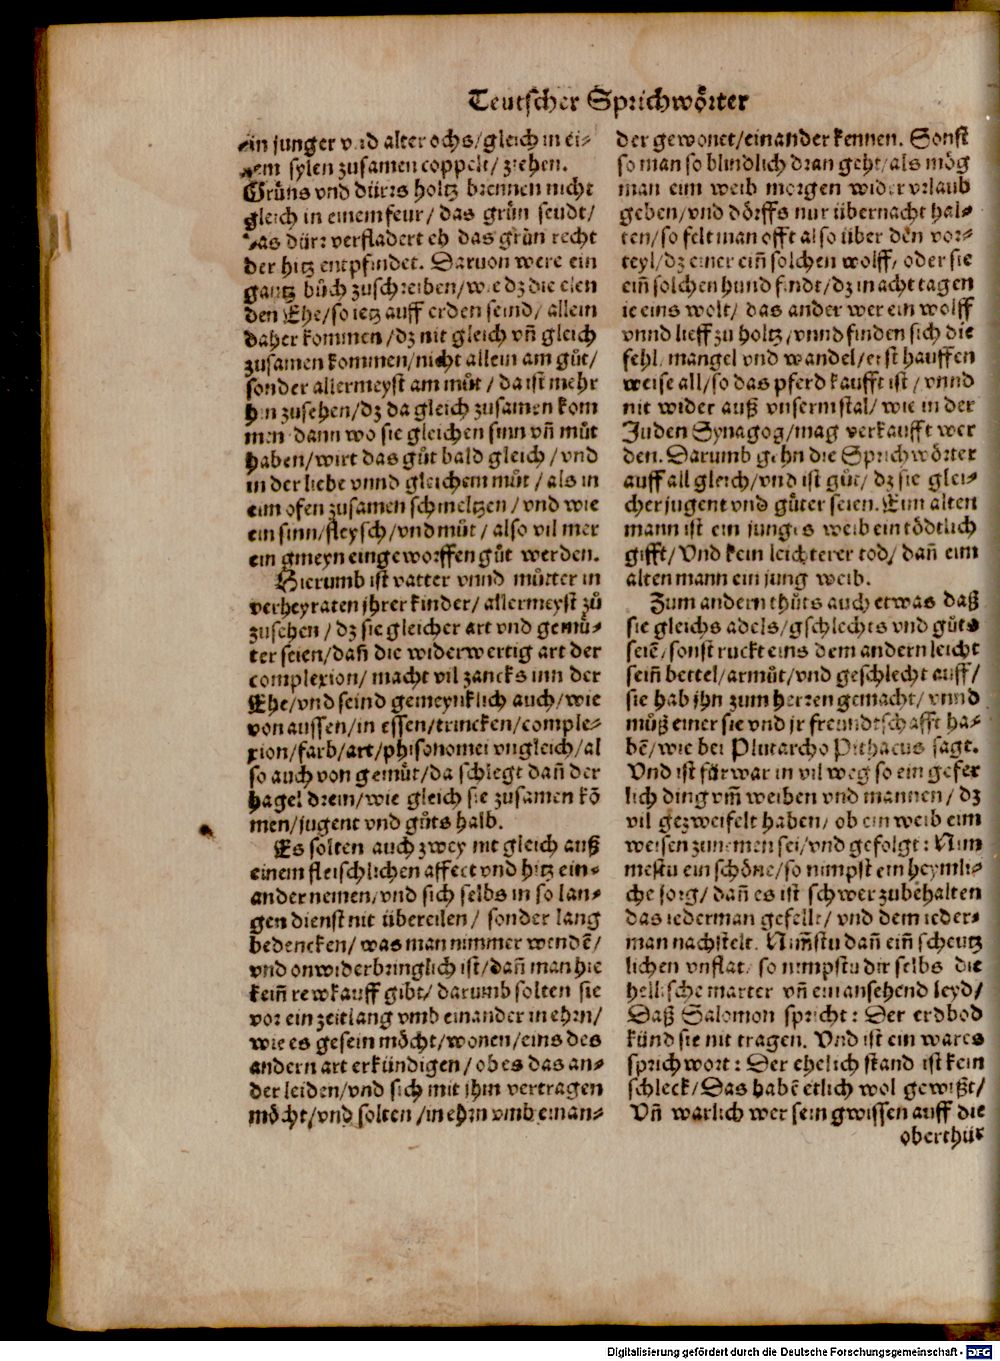 Teutscher Sprichwoͤrter
ein junger vnd alter ochs/gleich in ei-
nem sylen zusamen coppelt/ ziehen.
Gruͤns vnd duͤrrs holtz brennen nicht
gleich in einem feur/ das gruͤn seudt/
das duͤrr verfladert eh das gruͤn recht
der hitz entpfindet. Daruon were ein
gantz buͦch zuschreiben/wie dz die elen
den Ehe/so ietz auff erden seind/ allein
daher kommen/dz nit gleich vñ gleich
zusamen kommen/nicht allein am guͦt/
sonder allermeyst am muͦt/ da ist mehr
hin zusehen/dz da gleich zusamen kom
men dann wo sie gleichen sinn vñ muͦt
haben/wirt das guͦt bald gleich/vnd
in der liebe vnnd gleichem muͦt/ als in
eim ofen zusamen schmeltzen/vnd wie
ein sinn/fleysch/vnd muͦt/ also vil mer
ein gmeyn eingeworffen guͦt werden.
Hierumb ist vatter vnnd muͦtter in
verheyraten jhrer kinder/ allermeyst zuͦ
zusehen/dz sie gleicher art vnd gemuͤ-
ter seien/dañ die widerwertig art der
complexion/ macht vil zancks inn der
Ehe/vnd seind gemeynklich auch/wie
von aussen/in essen/trincken/comple-
xion/farb/art/phisonomei vngleich/al
so auch von gemuͤt/da schlegt dañ der
hagel drein/wie gleich sie zusamen kõ
men/jugent vnd guͦts halb.
Es solten auch zwey nit gleich auß
einem fleischlichen affect vnd hitz ein-
ander nemen/vnd sich selbs in so lan-
gen dienst nit übereilen/ sonder lang
bedencken/ was man nimmer wendẽ/
vnd onwiderbringlich ist/dañ man hie
keiñ rewkauff gibt/ darumb solten sie
vor ein zeitlang vmb einander in ehrn/
wie es gesein moͤcht/wonen/eins des
andern art erkündigen/ob es das an-
der leiden/vnd sich mit jhm vertragen
moͤcht/vnd solten/in ehrn vmb einan-
der gewonet/einander kennen. Sonst
so man so blindlich dran geht/als moͤg
man eim weib morgen wider vrlaub
geben/vnd doͤrffs nur übernacht hal-
ten/so felt man offt also über den vor-
teyl/dz einer eiñ solchen wolff/ oder sie
eiñ solchen hund findt/dz in acht tagen
ie eins wolt/ das ander wer ein wolff
vnnd lieff zu holtz/vnnd finden sich die
fehl/ mangel vnd wandel/erst hauffen
weise all/so das pferd kaufft ist/vnnd
nit wider auß vnserm stal/ wie in der
Juden Synagog/mag verkaufft wer
den. Darumb gehn die Sprichwoͤrter
auff all gleich/vnd ist guͦt/ dz sie glei-
cher jugent vnd guͤter seien. Eim alten
mann ist ein junges weib ein toͤdtlich
gifft/ Vnd kein leichterer tod/ dañ eim
alten mann ein jung weib.
Zum andern thuͦts auch etwas daß
sie gleichs adels/gschlechts vnd guͦts
seiẽ/ sonst ruckt eins dem andern leicht
seiñ bettel/armuͦt/vnd geschlecht auff/
sie hab jhn zum herren gemacht/ vnnd
muͦß einer sie vnd jr freundtschafft ha-
bẽ/wie bei Plutarcho Pithacus sagt.
Vnd ist fürwar in vil weg so ein gefer
lich ding vm̃ weiben vnd mannen/ dz
vil gezweifelt haben/ ob ein weib eim
weisen zunemen sei/vnd gefolgt: Nim
mestu ein schoͤne/so nimpst ein heymli-
che sorg/ dañ es ist schwer zubehalten
das iederman gefellt/ vnd dem ieder-
man nachstelt. Nim̃stu dañ eiñ scheutz
lichen vnflat/ so nimpstu dir selbs die
hellische marter vñ ein ansehend leyd/
Daß Salomon spricht: Der erdbod
künd sie nit tragen. Vnd ist ein wares
sprichwort: Der ehelich stand ist kein
schleck/Das habẽ etlich wol gewißt/
Vñ warlich wer sein gwissen auff die
oberthür
Digitalisierung gefördert durch die Deutsche Forschungsgemeinschaft - DFG